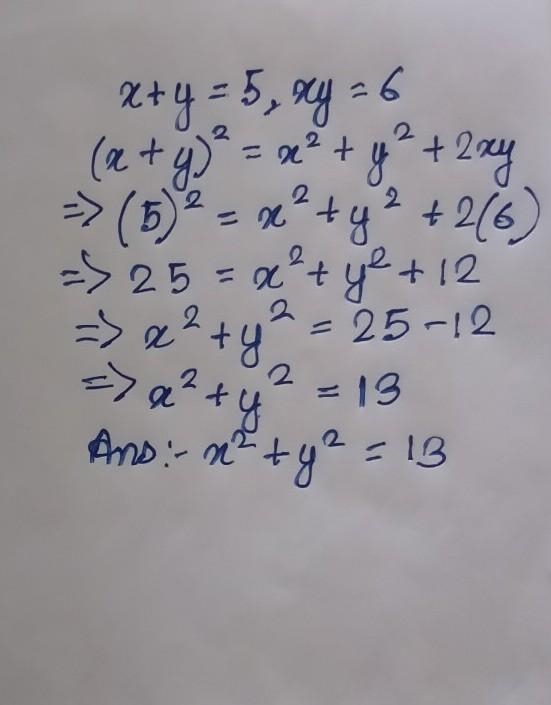 x+y = 5, xy = 6
(x + y)² = x² + y² + 2xy
=> (5)² = x² + y² + 2(6)
=> 25 = x² + y² + 12
=> x² + y² = 25 - 12
=> x² + y² = 13
Ans:- x² + y² = 13